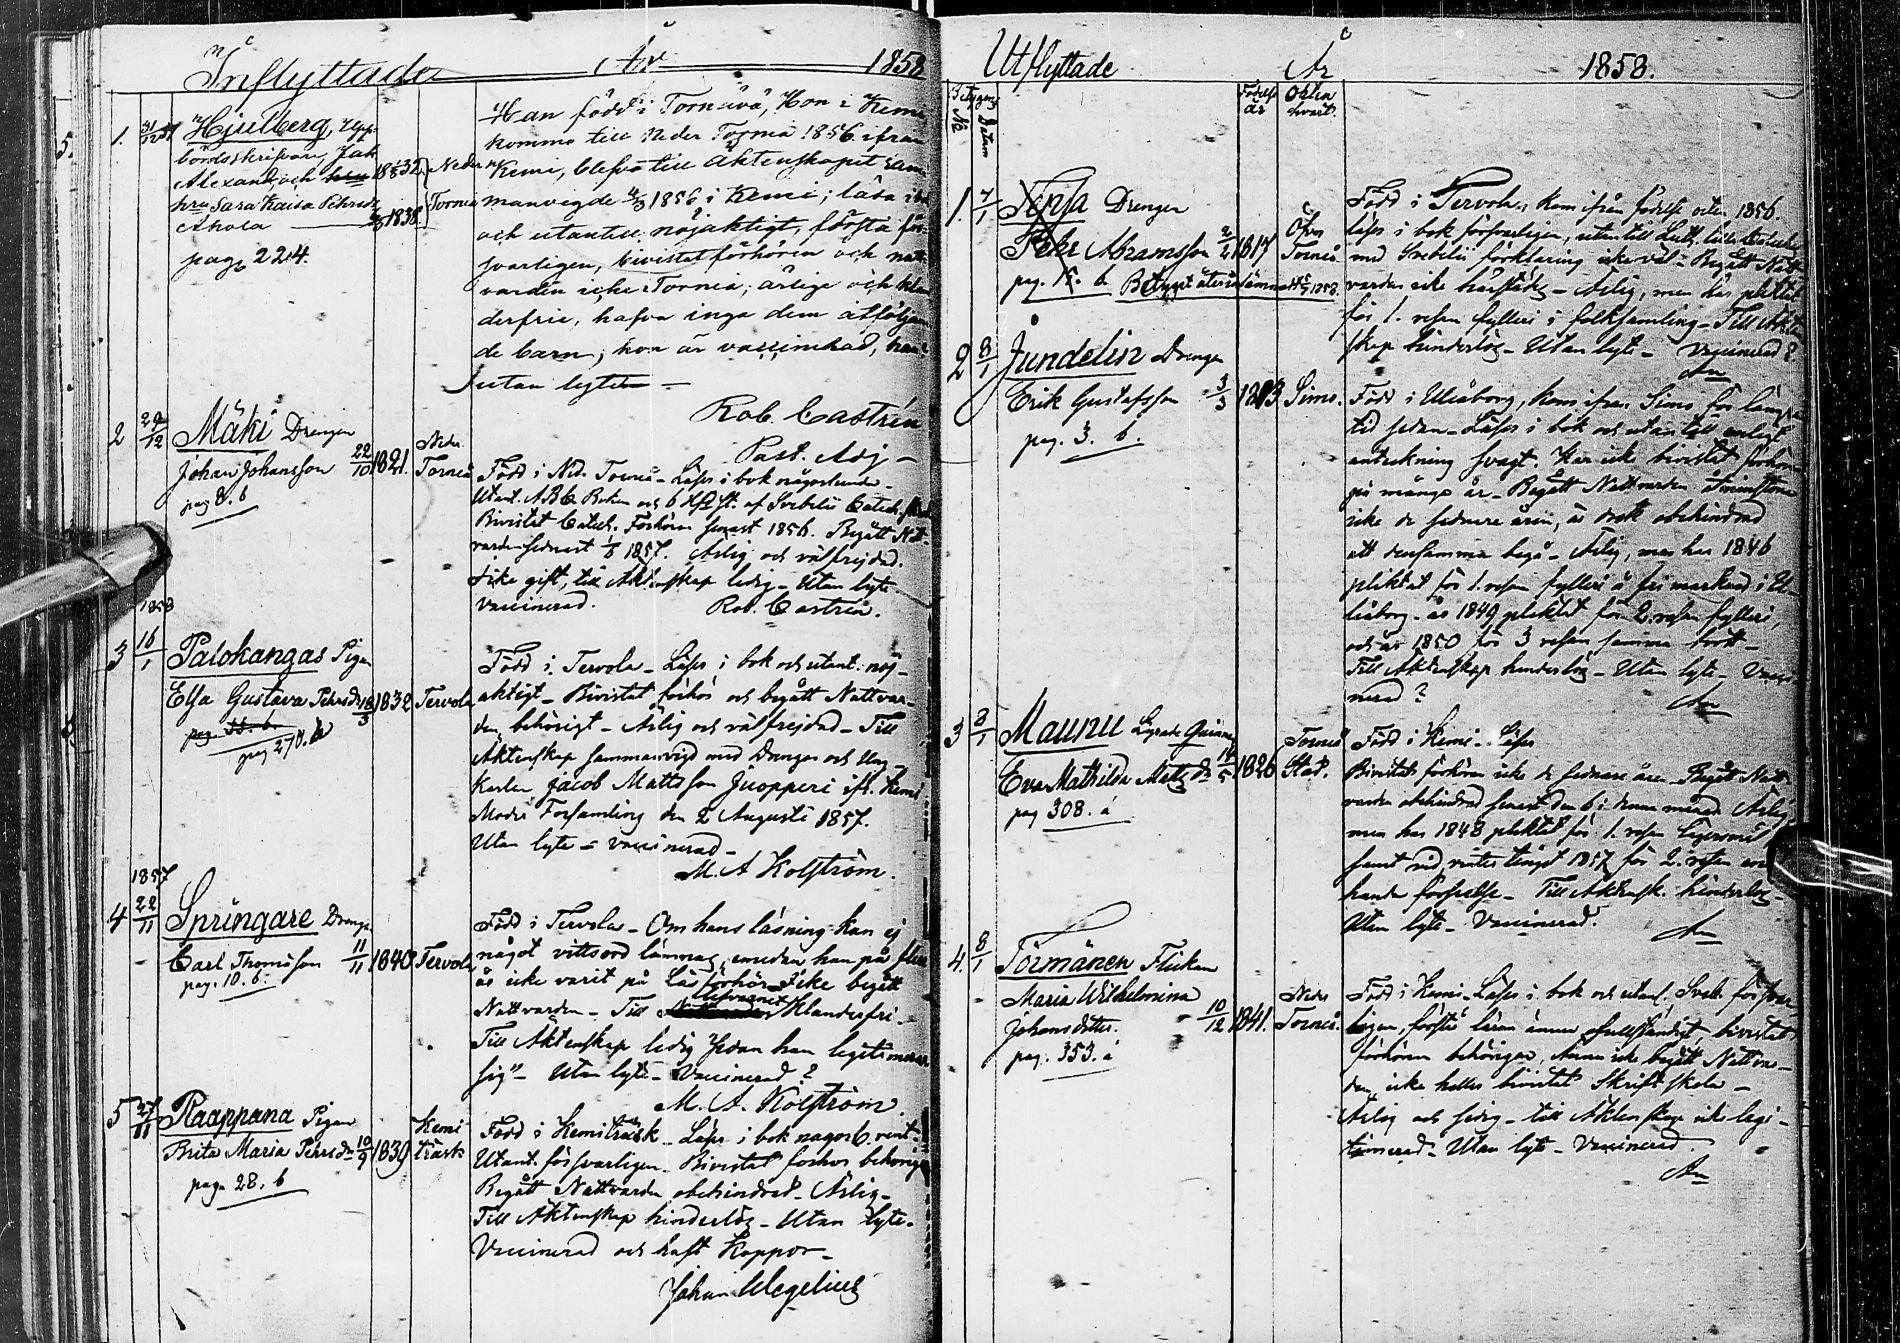 Inflyttade År 1858
5.
1. 31/12 57 Hjulberg, Upp-
bördsskrifvare Jak.
Alexand. och
hru Sara Kaisa Pehrsdr
Ahola
pag. 224.
1832
1838
Neder
Torneå
Han född i Torneå, Hon i Kemi
komma till Neder Torneå 1856 ifrån
Kemi, blefvo till Äktenskapet sam-
manvigde 1856 i Kemi; läsa i bok
och utantill nöjaktigt, förstå för-
svarligen, bivistat förhören och natt-
varden icke i Torneå; ärlige och klan-
derfrie, hafva inga dem åtföljan-
de barn; hon är vaccinerad,
utan lyten —
Rob. Castrén
Past. Adj —
2 29/12 Mäki Drengen
Johan Johansson 22/10 1821.
pag 8. b
Neder
Torneå
Född i Ned. Torneå — Läser i bok någorlunda —
Utant. ABC Boken och 6 af Svebelii Catech.
Bivistat Catech. Förhören senast 1856. Begått Natt-
varden sednast 1857. Ärlig och välfrejdad.
Icke gift, till Äktenskap ledig — Utan lyte
vaccinerad. Rob. Castrén.
1858
3 16/1 Palokangas Pigan
Elsa Gustava Pehrsdr 18/3 1832 Tervola
pag. 33. b
pag 270. b
Född i Tervola — Läser i bok och utant. nöj-
aktigt — Bivistat förhör och begått Nattvar-
den behörigt — Ärlig och välfrejdad — Till
Äktenskap sammanvigd med Drengen och Ung-
karlen Jacob Mattsson Juopperi ifr. Kemi
Moder Församling den 2 Augusti 1857.
Utan lyte — vaccinerad —
M. A. Kolström.
1857
4 22/11 Springare Drengen
Carl Thomasson 11/11 1840 Tervola
pag. 10. b.
Född i Tervola — Om hans läsning kan ej
något vittsord lämnas, emedan han på flere
år icke varit på Läsförhör. Icke begått
Nattvarden — Till lefvernet Klanderfri —
Till Äktenskap ledig sedan han legitimerat
sig" — Utan lyte — Vaccinerad?
M. A. Kolström
5 27/11 Raappana Pigan
Brita Maria Pehrsdr 10/9 1839
pag. 28. b
Kemi
träsk
Född i Kemiträsk — Läser i bok någorl. rent —
Utant. försvarligen — Bivistat förhör behörigen
Begått Nattvarden obehindrad — Ärlig —
Till Äktenskap hinderlös — Utan lyte —
Vaccinerad och haft Koppor —
Johan Wegelius
Utflyttade År 1858.
Betygens
No Datum
Födelse
år
Orten
hvart.
1. 7/1 Drengen
Pehr Abramsson 2/1 1817
pag. b Betyget återinlämnadt 1858.
Öfver
Torneå
Född i Tervola, kom ifrån födelse orten 1856.
läser i bok försvarligen, utantill Luth. lilla Cateches
med Svebelii förklaring icke väl — Begått Natt-
varden icke härstädes — Ärlig, men har pliktat
för 1. resan fylleri i folksamling — Till Äkten-
skap hinderlös — Utan lyte — Vaccinerad?
2 8/1 Jundelin Drengen
Erik Gustafsson 3/3 1813 Simo.
pag. 3. b.
Född i Uleåborg, kom ifrån Simo för längre
tid sedan — Läser i bok och utantill enligt
anteckning svagt. Har icke bivistat förhören
på många år — Begått Nattvarden åtminstone
icke de sednare åren, är dock obehindrad
att densamma begå — Ärlig, men har 1846
pliktat för 1. resan fylleri å fri marknad i U-
leåborg — år 1849 pliktat för 2. resan fylleri,
och år 1850 för 3 resan samma brott —
Till Äktenskap hinderlös — Utan lyte — Vacci-
nerad?
3 8/1 Maunu Lägrade Qvinnan
Eva Mathilda Mattsdr 14/5 1826
pag 308. á
Torneå
Stad.
Född i Kemi — Läser
Bivistat förhören icke de sednare åren — Begått Natt-
varden obehindrad senast den 6 i denna månad. Ärlig,
men har 1848 pliktat för 1. resan lägersmål
samt vid vintertinget 1857 för 2. resan
förseelse — Till Äktensk. hinderlös —
Utan lyte — Vaccinerad.
4. 8/1 Törmänen Flickan
Maria Wilhelmina
Johansdotter. 10/12 1841.
pag. 353. á
Neder
Torneå.
Född i Kemi — Läser i bok och utant. Sveb. försvar-
ligen, förstår läran ännu ofullständigt, bivistat
förhören behörigen, ännu icke begått Nattvar-
den, icke heller bivistat Skriftskola —
Ärlig och sedig — till Äktenskap icke legi-
timerad — Utan lyte — Vaccinerad.